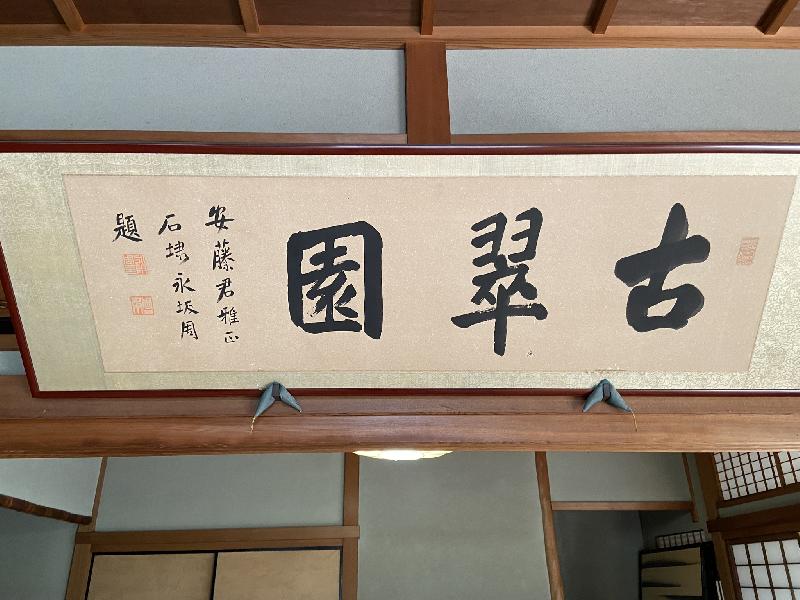 古翠園
安藤君雅正
石埭永坂周
題